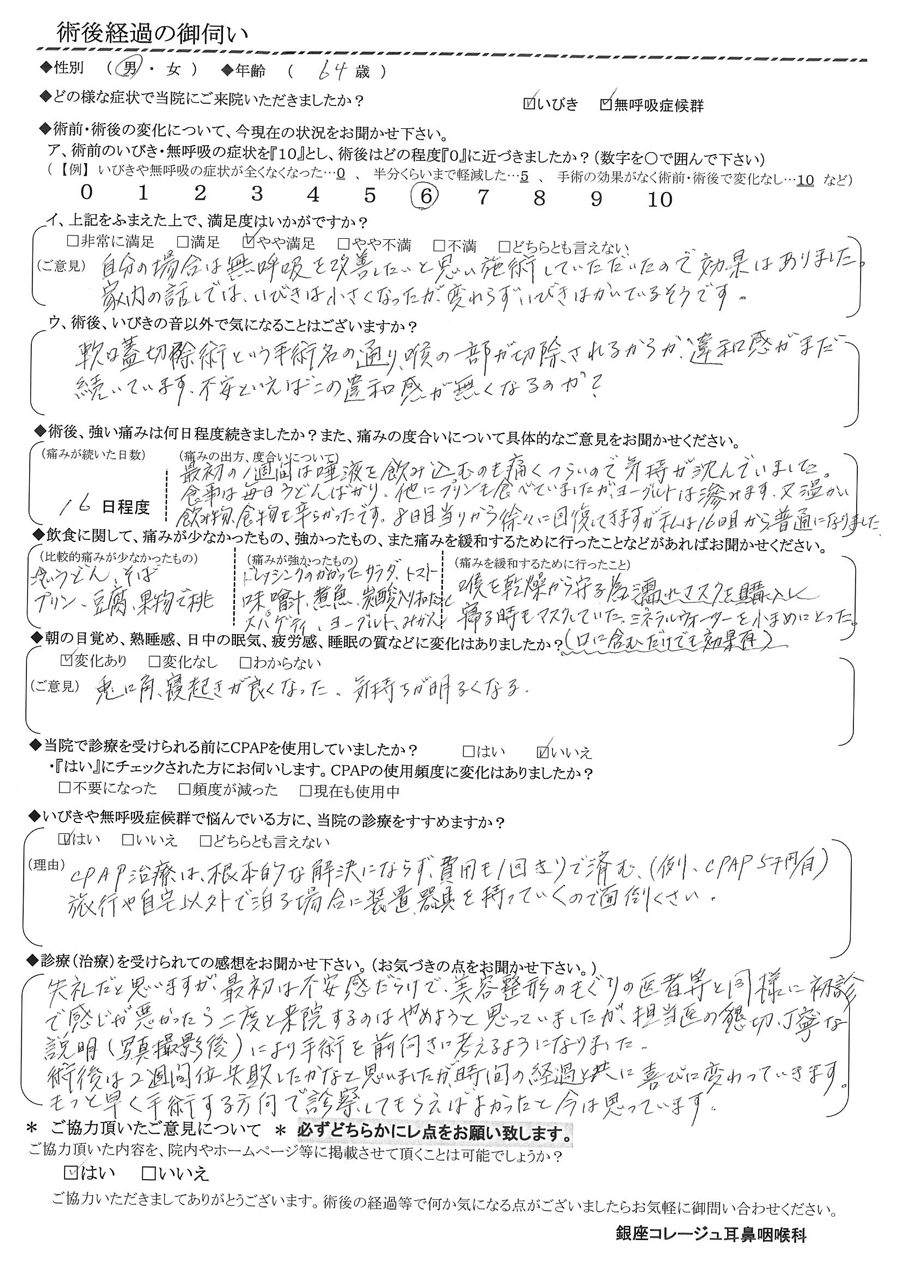 術後経過の御伺い
◆性別 (男・女) ◆年齢 ( 64 歳 )
◆どの様な症状で当院にご来院いただきましたか? ☑いびき ☑無呼吸症候群
◆術前・術後の変化について、今現在の状況をお聞かせ下さい。
ア、術前のいびき・無呼吸の症状を『10』とし、術後はどの程度『0』に近づきましたか?(数字を○で囲んで下さい)
(【例】いびきや無呼吸の症状が全くなくなった…0 、 半分くらいまで軽減した…5 、 手術の効果がなく術前・術後で変化なし…10 など)
0 1 2 3 4 5 6 7 8 9 10
イ、上記をふまえた上で、満足度はいかがですか?
□非常に満足 □満足 ☑やや満足 □やや不満 □不満 □どちらとも言えない
(ご意見) 自分の場合は無呼吸を改善したいと思い施術していただいたので効果はありました。
家内の話しでは、いびきは小さくなったが、変わらずいびきはかいているそうです。
ウ、術後、いびきの音以外で気になることはございますか?
軟口蓋切除術という手術名の通り、喉の一部が切除されるからか、違和感がまだ
続いています。不安といえばこの違和感が無くなるのか?
◆術後、強い痛みは何日程度続きましたか?また、痛みの度合いについて具体的なご意見をお聞かせください。
(痛みが続いた日数) (痛みの出方、度合いについて)
最初の1週間は唾液を飲み込むのも痛くつらいので気持が沈んでいました。
食事は毎日うどんばかり、他にプリンも食べていましたが、ヨーグルトは滲みます。又温かい
16 日程度 飲み物、食物も辛らかったです。8日目当りから徐々に回復してきますが私は16日目から普通になりました
◆飲食に関して、痛みが少なかったもの、強かったもの、また痛みを緩和するために行ったことなどがあればお聞かせください。
(比較的痛みが少なかったもの) (痛みが強かったもの) (痛みを緩和するために行ったこと)
うどん、そば ドレッシングのかかったサラダ、トマト 喉を乾燥から守る為濡れマスクを購入し
プリン、豆腐、果物で桃 味噌汁、煮魚、炭酸入り 寝る時もマスクしていた。ミネラルウォーターを小まめにとった。
スパゲティ、ヨーグルト、みかん (口に含むだけでも効果有)
◆朝の目覚め、熟睡感、日中の眠気、疲労感、睡眠の質などに変化はありましたか?
☑変化あり □変化なし □わからない
(ご意見) 兎に角、寝起きが良くなった、気持ちが明るくなる.
◆当院で診療を受けられる前にCPAPを使用していましたか? □はい ☑いいえ
・『はい』にチェックされた方にお伺いします。CPAPの使用頻度に変化はありましたか?
□不要になった □頻度が減った □現在も使用中
◆いびきや無呼吸症候群で悩んでいる方に、当院の診療をすすめますか?
☑はい □いいえ □どちらとも言えない
(理由) CPAP治療は、根本的な解決にならず、費用も1回きりで済む、(例、CPAP5千円/月)
旅行や自宅以外で泊る場合に装置、器具を持っていくので面倒くさい。
◆診療(治療)を受けられての感想をお聞かせ下さい。(お気づきの点をお聞かせ下さい。)
失礼だと思いますが、最初は不安感だらけで、美容整形のもぐりの医者等と同様に初診
で感じが悪かったら二度と来院するのはやめようと思っていましたが、担当医の懇切、丁寧な
説明(写真撮影後)により手術を前向きに考えるようになりました。
術後は2週間位失敗したかなと思いましたが、時間の経過と共に喜びに変わっていきます。
もっと早く手術する方向で診察してもらえばよかったと今は思っています。
* ご協力頂いたご意見について * 必ずどちらかにレ点をお願い致します。
ご協力頂いた内容を、院内やホームページ等に掲載させて頂くことは可能でしょうか?
☑はい □いいえ
ご協力いただきましてありがとうございます。術後の経過等で何か気になる点がございましたらお気軽に御問い合わせください。
銀座コレージュ耳鼻咽喉科